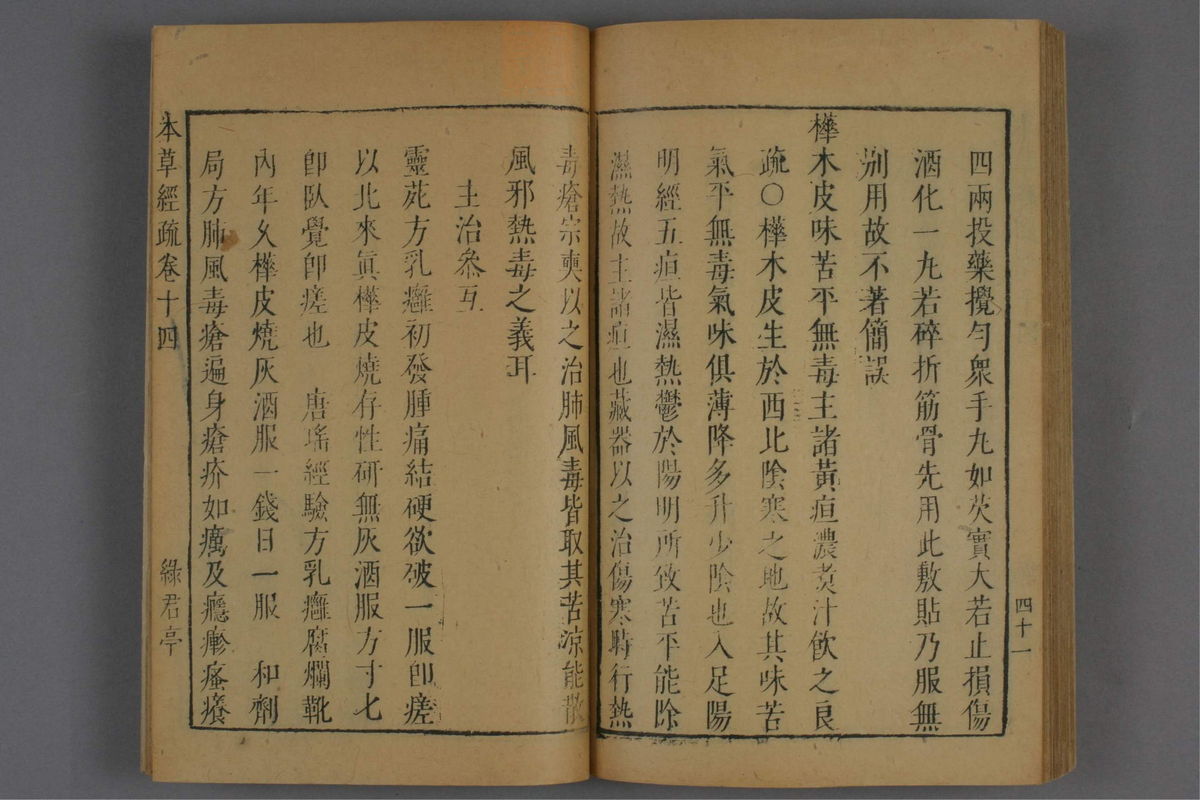 四兩投藥攪勻衆手丸如芡實大若止損傷
酒化一丸若碎折筋骨先用此敷貼乃服無
別用故不著簡誤
樺木皮味苦平無毒主諸黃疸濃煑汁飲之良
疏○樺木皮生於西北陰寒之地故其味苦
氣平無毒氣味俱薄降多升少陰也入足陽
明經五疸皆濕熱鬱於陽明所致苦平能除
濕熱故主諸疸也藏器以之治傷寒時行熱
四十一
毒瘡宗奭以之治肺風毒皆取其苦涼能散
風邪熱毒之義耳
主治叅互
靈苑方乳癰初發腫痛結硬欲破一服卽瘥
以北來眞樺皮燒存性研無灰酒服方寸七
卽臥覺卽瘥也　唐瑤經驗方乳癰腐爛靴
內年久樺皮燒灰酒服一錢日一服　和劑
局方肺風毒瘡遍身瘡疥如癘及癮瘮瘙癢
本草經疏卷十四
綠君亭